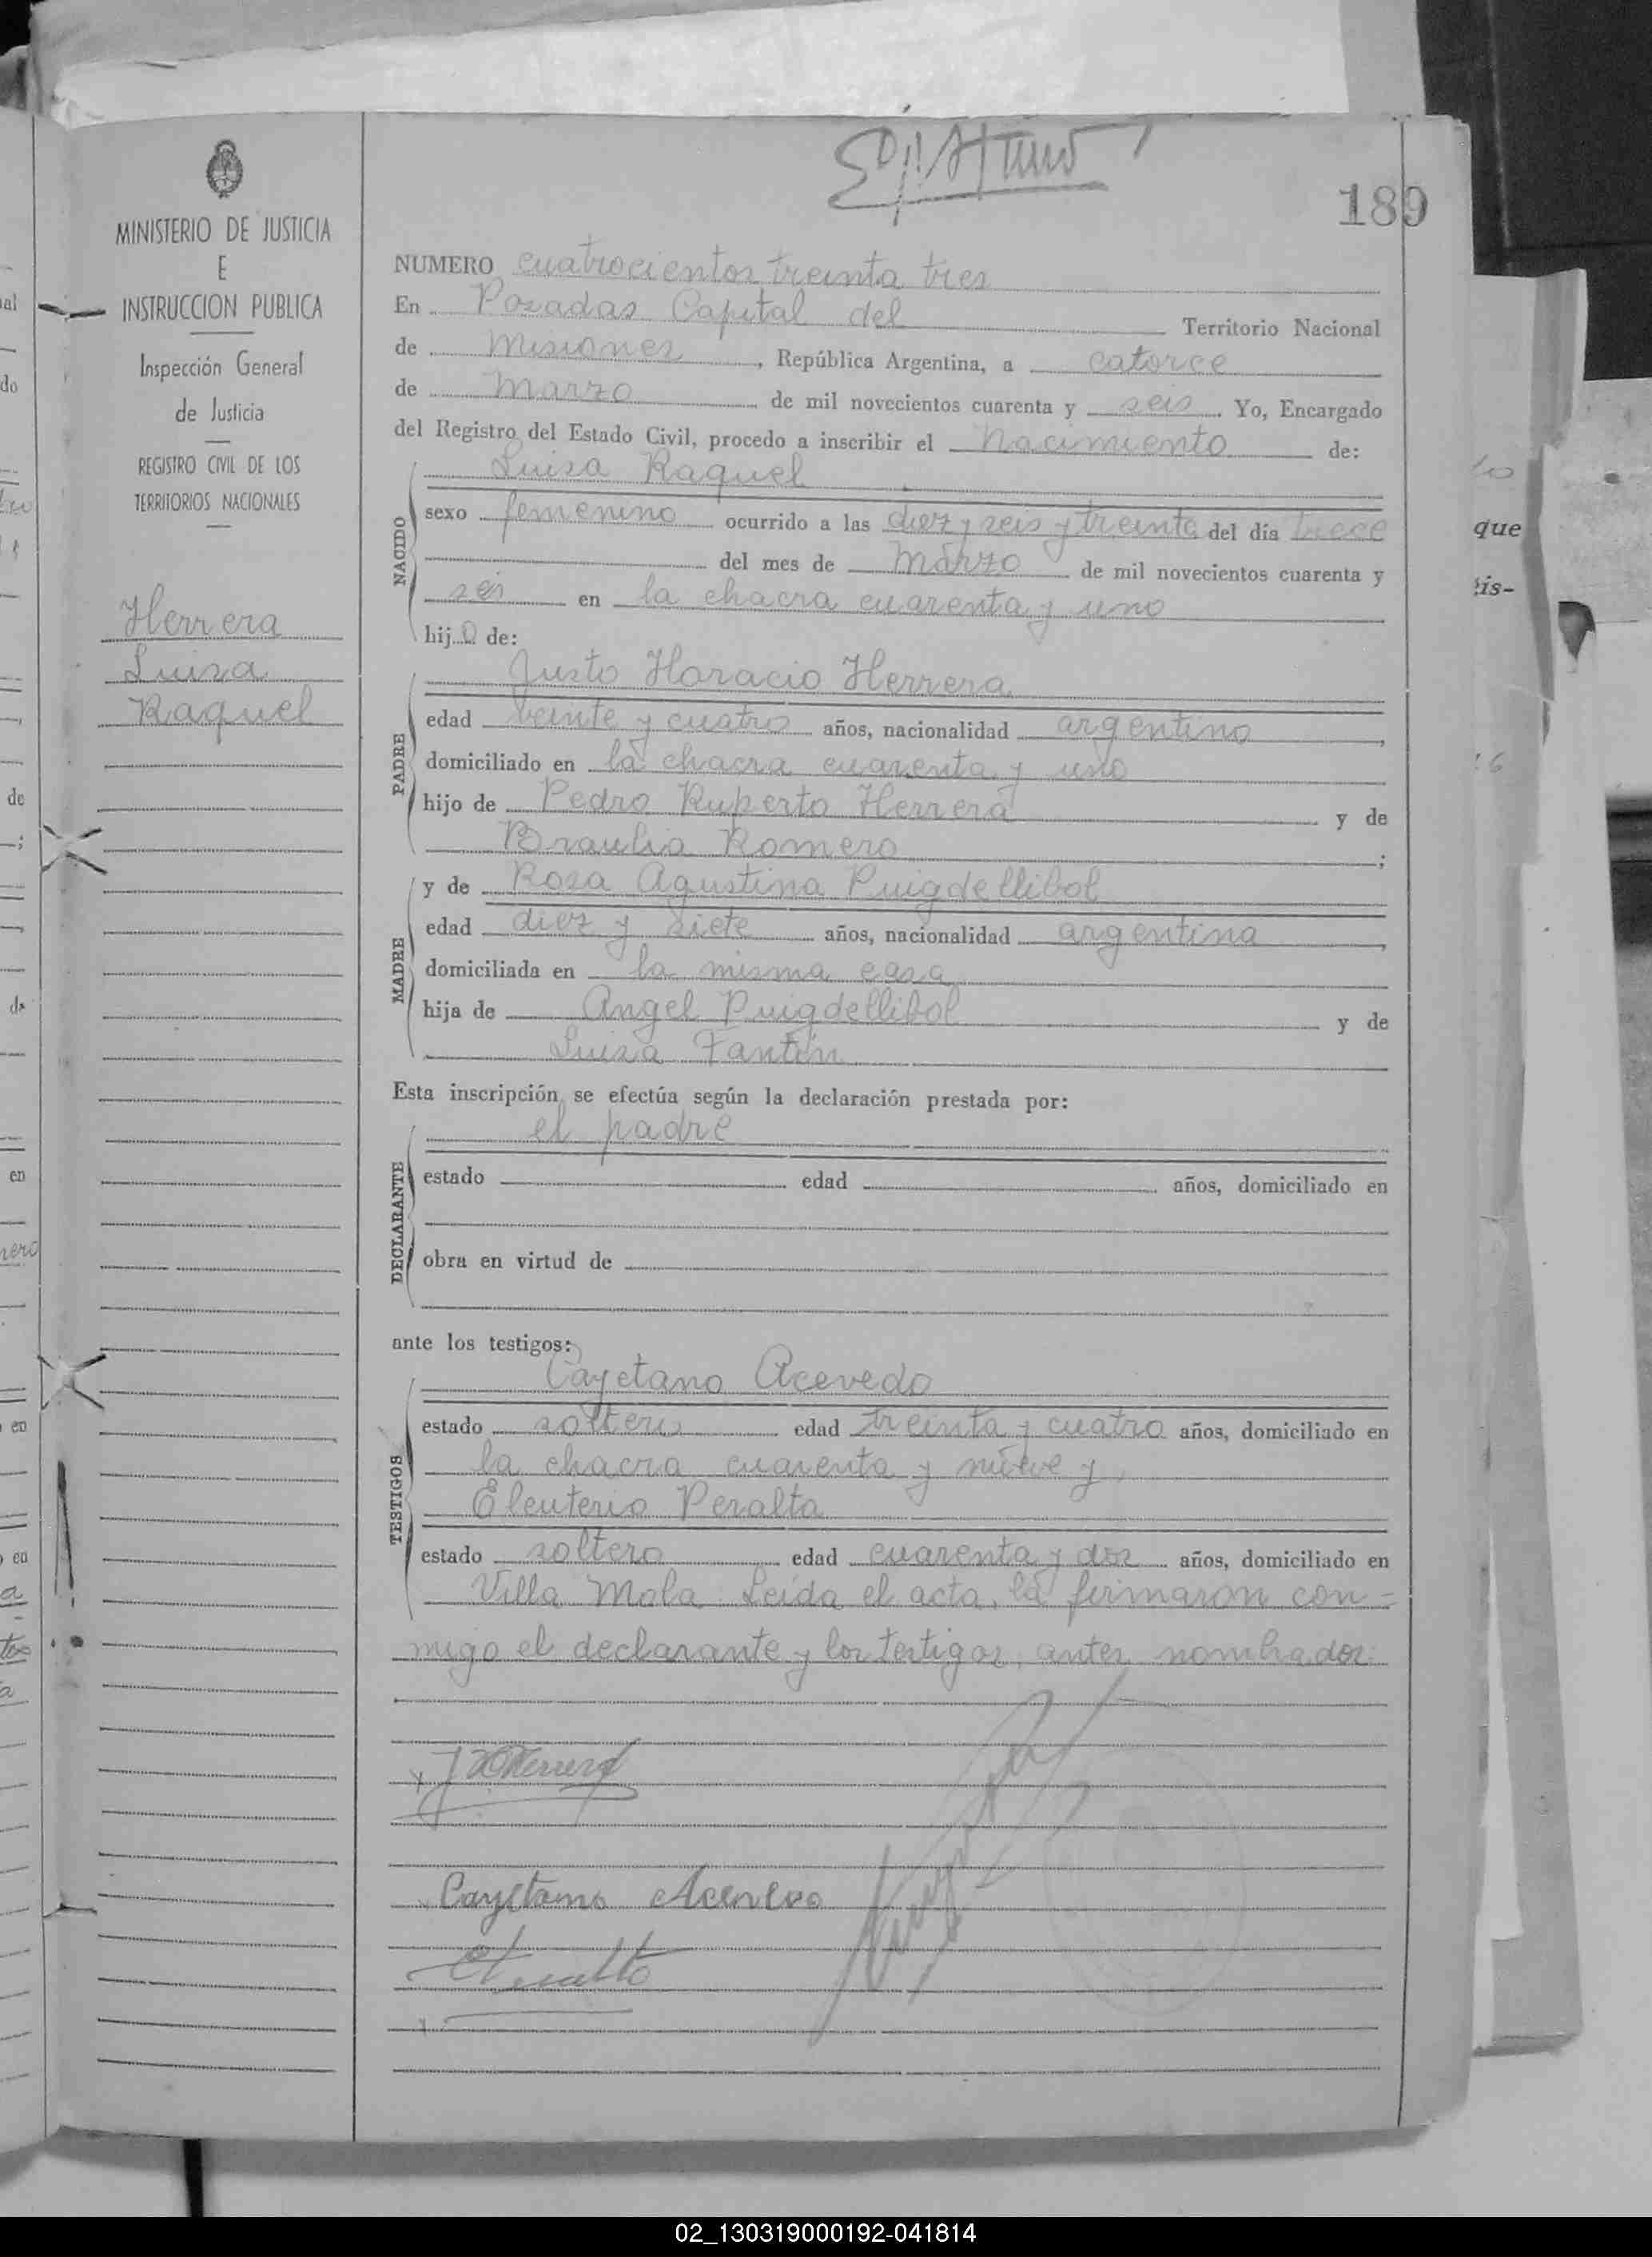 189
MINISTERIO DE JUSTICIA
E
INSTRUCCION PUBLICA
Inspección General
de Justicia
REGISTRO CIVIL DE LOS
TERRITORIOS NACIONALES
Herrera
Luisa
Raquel
NUMERO cuatrocientos treinta tres
En Posadas Capital del Territorio Nacional
de Misiones, República Argentina, a catorce
de Marzo de mil novecientos cuarenta y seis. Yo, Encargado
del Registro del Estado Civil, procedo a inscribir el Nacimiento de:
NACIDO
Luisa Raquel
sexo femenino ocurrido a las diez y seis y treinta del día trece
del mes de Marzo de mil novecientos cuarenta y
seis en la chacra cuarenta y uno
hija de:
PADRE
Justo Horacio Herrera
edad veinte y cuatro años, nacionalidad argentino,
domiciliado en la chacra cuarenta y uno
hijo de Pedro Ruperto Herrera y de
Braulia Romero;
MADRE
y de Rosa Agustina Puigdellibol
edad diez y siete años, nacionalidad argentina,
domiciliada en la misma casa
hija de Angel Puigdellibol y de
Luisa Fantín
Esta inscripción se efectúa según la declaración prestada por:
DECLARANTE
el padre
estado edad años, domiciliado en
obra en virtud de
ante los testigos:
TESTIGOS
Cayetano Acevedo
estado soltero edad treinta y cuatro años, domiciliado en
la chacra cuarenta y nueve y,
Eleuterio Peralta
estado soltero edad cuarenta y dos años, domiciliado en
Villa Mola. Leída el acta, la firmaron con=
migo el declarante y los testigos, antes nombrados.
Cayetano Acevedo
que
02_130319000192-041814